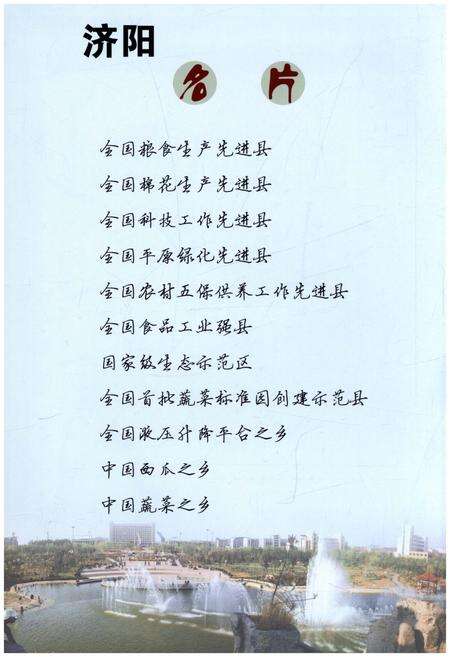 济阳
名片
全国粮食生产先进县
全国棉花生产先进县
全国科技工作先进县
全国平原绿化先进县
全国农村五保供养工作先进县
全国食品工业强县
国家级生态示范区
全国首批蔬菜标准园创建示范县
全国液压升降平台之乡
中国西瓜之乡
中国蔬菜之乡